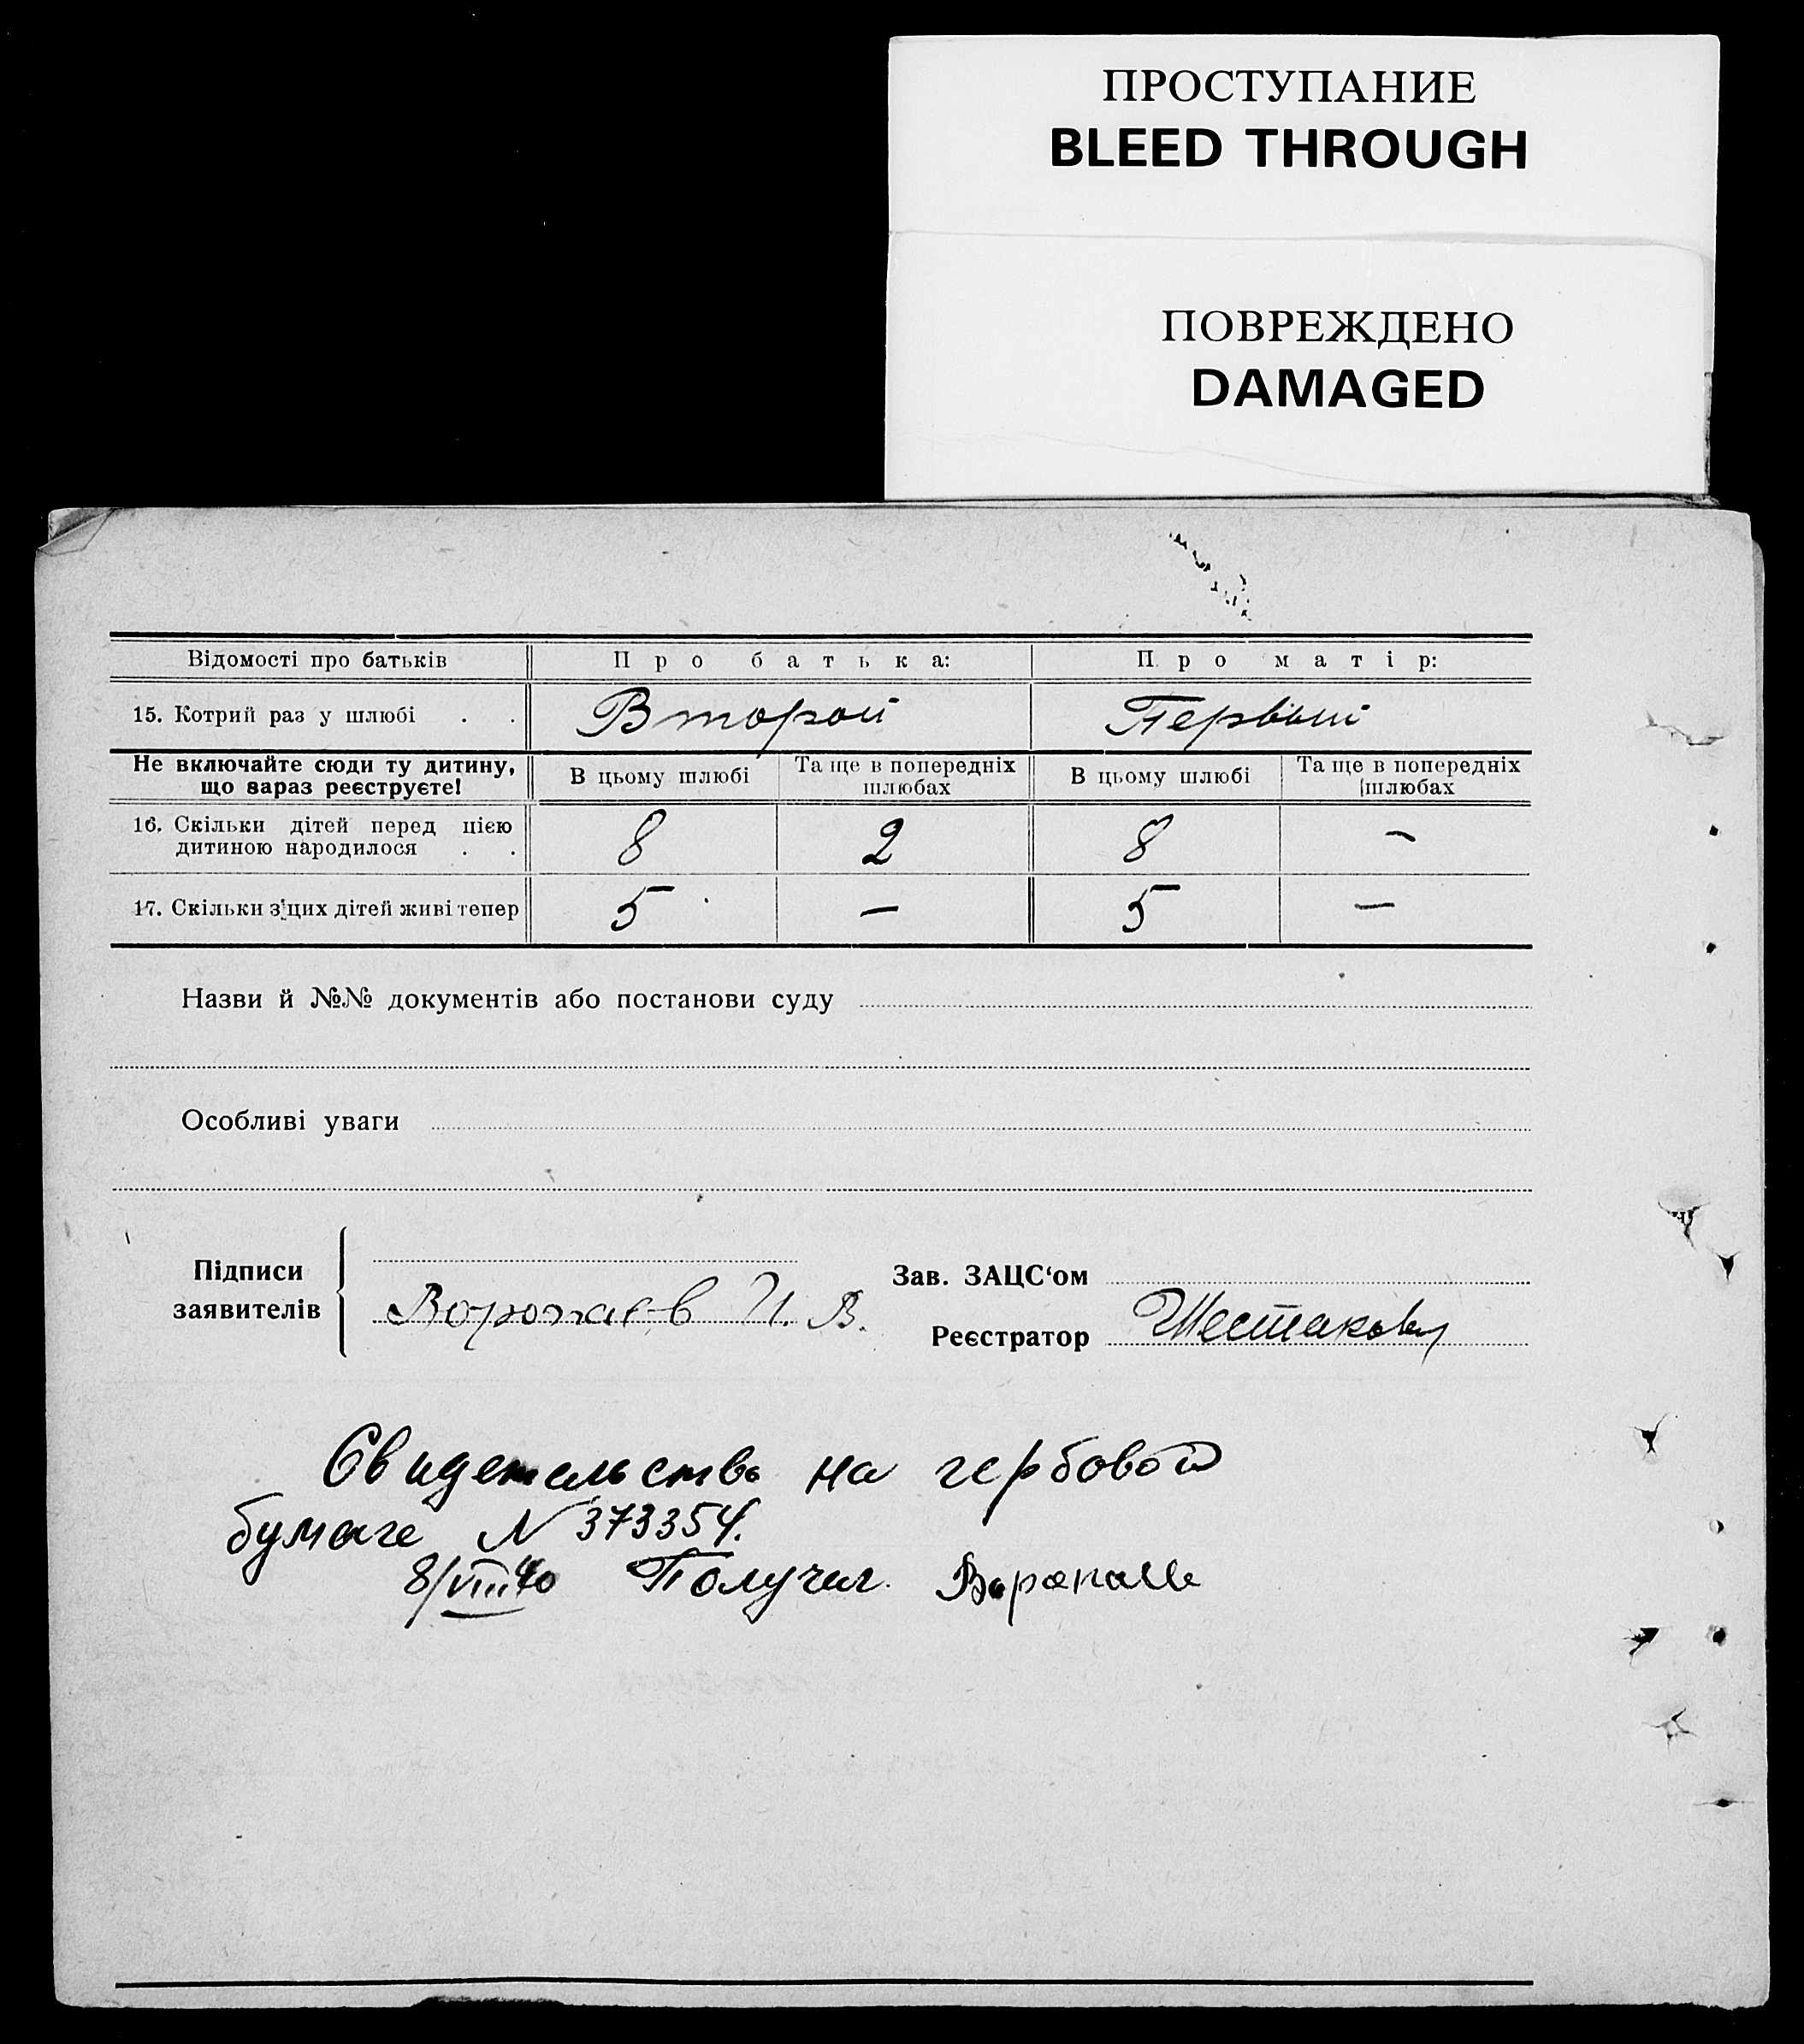 ПРОСТУПАНИЕ
BLEED THROUGH
ПОВРЕЖДЕНО
DAMAGED
Відомості про батьків Про батька: Про матір:
15. Котрий раз у шлюбі . . Второй Первый
Не включайте сюди ту дитину, що зараз реєструєте! В цьому шлюбі Та ще в попередніх шлюбах В цьому шлюбі Та ще в попередніх шлюбах
16. Скільки дітей перед цією дитиною народилося . . 8 2 8 –
17. Скільки з цих дітей живі тепер 5 – 5 –
Назви й №№ документів або постанови суду
Особливі уваги
Підписи заявителів
Зав. ЗАЦС‘ом
Воропаев И. В.
Реєстратор Шестакова
Свидетельство на гербовой
бумаге N 373354.
8/VIII 40 Получил